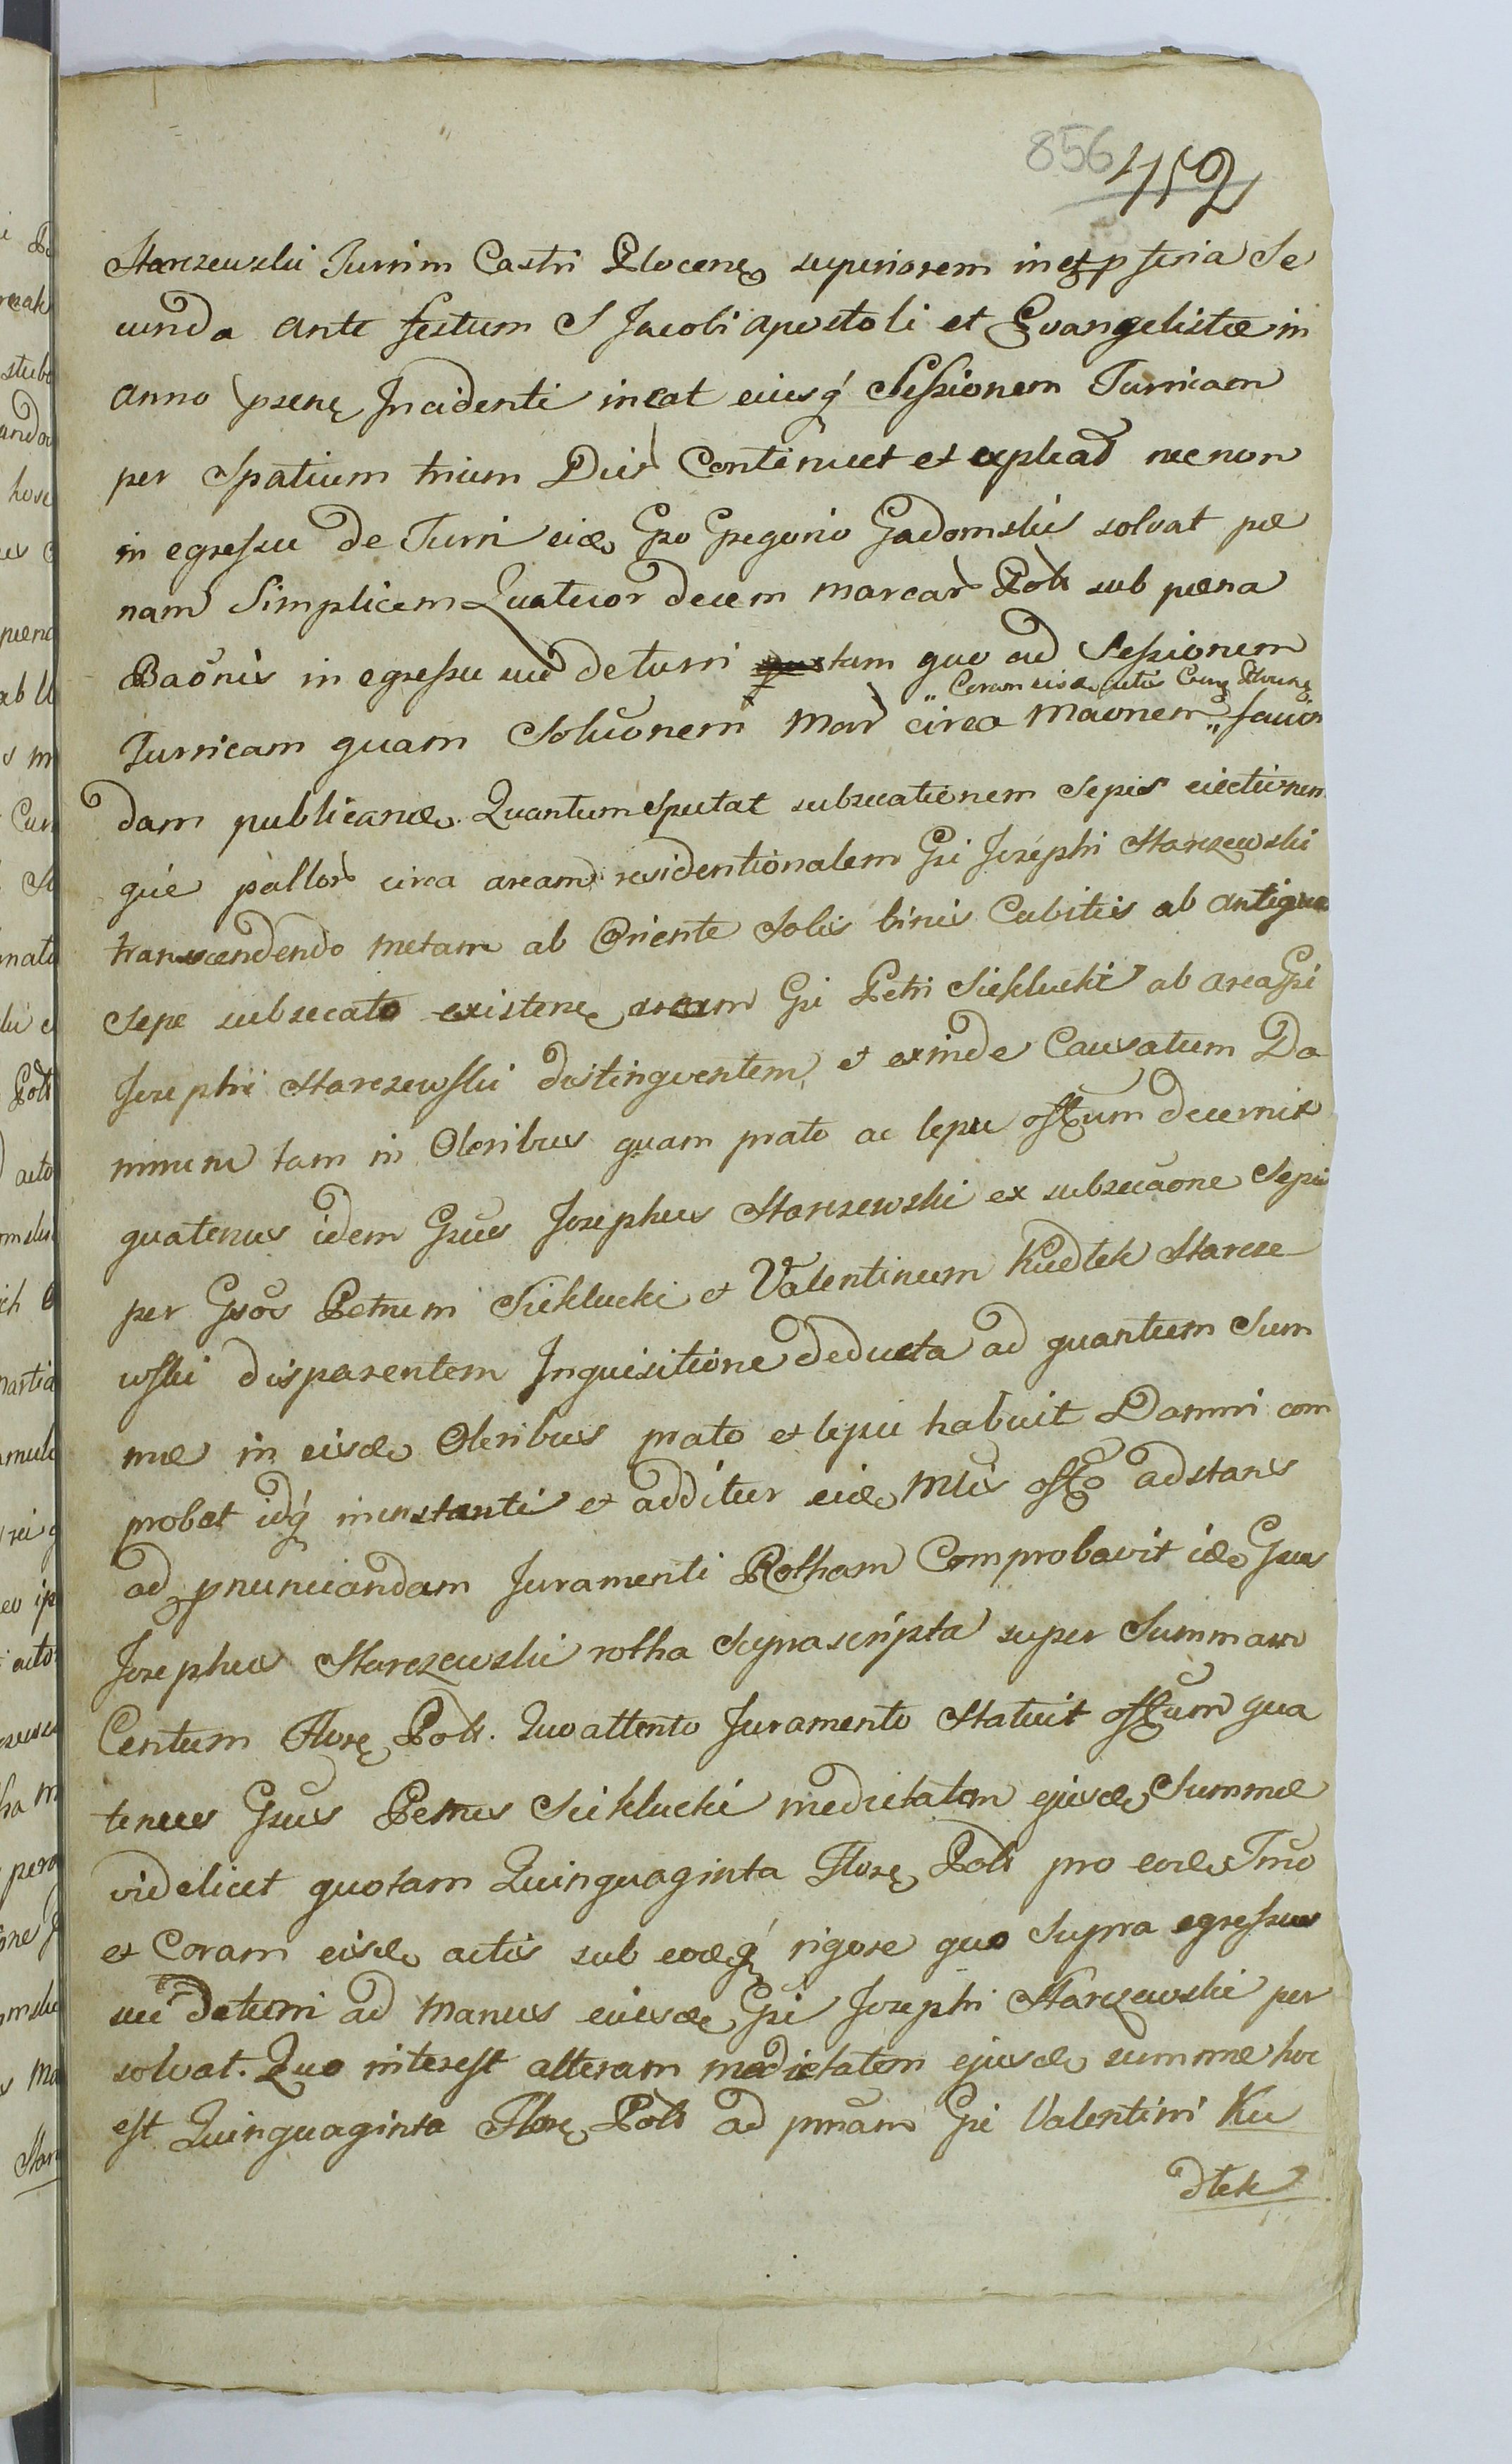 856
452
Starczewski Turrim Castri Plocen superiorem in et p feria Se
cunda ante festum S Jacobi Apostoli et Evangelistæ in
Anno præsen Incidenti ineat eiusq Sessionem Turricam
per Spatium trium Dier Continuet et expleat necnon
in egressu de Turri eid Gso Gregorio Gadomski solvat pœ
nam Simplicem Quatuor decem marcar Pol sub pœna
Baonis in egressu suo de turri tam quo ad Sessionem
"Coram eisd actis Cas Plocen
Turricam quam Soluonem Mar circa Maonem " facien
dam publicand. Quantum Spectat subsecationem Sepis eiectionem
que pallor circa aream residentionalem Gsi Josephi Starczewski
transcendendo metam ab Oriente Solis binis Cubitis ab antiquo
Sepe subsecato existen aream Gsi Petri Sieklucki ab area Gsi
Josephi Starczewski distinguentem, et exinde Causatum Da
mnum tam in Oleribus quam prato ac sepe Offum decernit
quatenus idem Gsus Josephus Starczewski ex subsecaone Sepis
per Gsos Petrum Sieklucki et Valentinum Kudtek Starcze
wski disparentem Inquisitione deducta ad quantum Sum
mæ in eisd Oleribus prato et sepe habuit Damni com
probet idq in instanti et additur eid Mlis Off adstans
ad pnunciandam Juramenti Rotham Comprobavit id Gsus
Josephus Starczewski rotha Suprascripta super Summam
Centum Flor Pol. Quo attento Juramento Statuit Offum qua
tenus Gsus Petrus Sieklucki medietatem ejusd Summæ
videlicet quotam Quinquaginta Flor Pol pro eod Tmo
et Coram eisd actis sub eodq rigore quo Supra egressus
sui de turri ad Manus eiusd Gsi Josephi Starczewski per
solvat. Quo interest alteram medietatem ejusd summæ hoc
est Quinquaginta Flor Pol ad psnam Gsi Valentini Ku
dtek